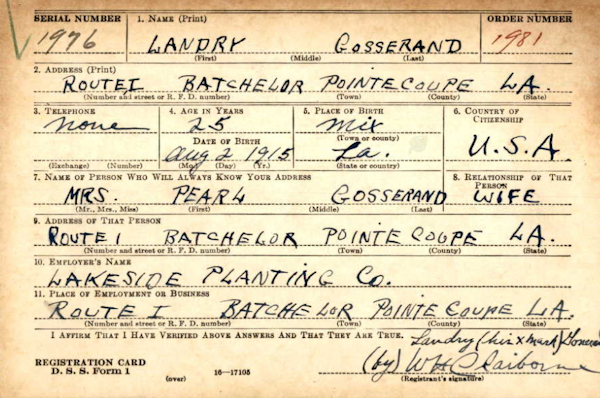 SERIAL NUMBER 1. NAME (Print) ORDER NUMBER
1976 LANDRY GOSSERAND 1981
(First) (Middle) (Last)
2. ADDRESS (Print)
ROUTE I BATCHELOR POINTE COUPE LA.
(Number and street or R. F. D. number) (Town) (County) (State)
3. TELEPHONE 4. AGE IN YEARS 5. PLACE OF BIRTH 6. COUNTRY OF CITIZENSHIP
none 25 Mix
DATE OF BIRTH (Town or county) U.S.A.
Aug 2 1915 La.
(Exchange) (Number) (Mo.) (Day) (Yr.) (State or country)
7. NAME OF PERSON WHO WILL ALWAYS KNOW YOUR ADDRESS 8. RELATIONSHIP OF THAT PERSON
MRS. PEARL GOSSERAND WIFE
(Mr., Mrs., Miss) (First) (Middle) (Last)
9. ADDRESS OF THAT PERSON
ROUTE I BATCHELOR POINTE COUPE LA.
(Number and street or R. F. D. number) (Town) (County) (State)
10. EMPLOYER'S NAME
LAKESIDE PLANTING CO.
11. PLACE OF EMPLOYMENT OR BUSINESS
ROUTE I BATCHELOR POINTE COUPE LA.
(Number and street or R. F. D. number) (Town) (County) (State)
I AFFIRM THAT I HAVE VERIFIED ABOVE ANSWERS AND THAT THEY ARE TRUE.
Landry (his x mark)
REGISTRATION CARD (by) W H Claiborne
D. S. S. Form 1 (over) 16—17105 (Registrant's signature)